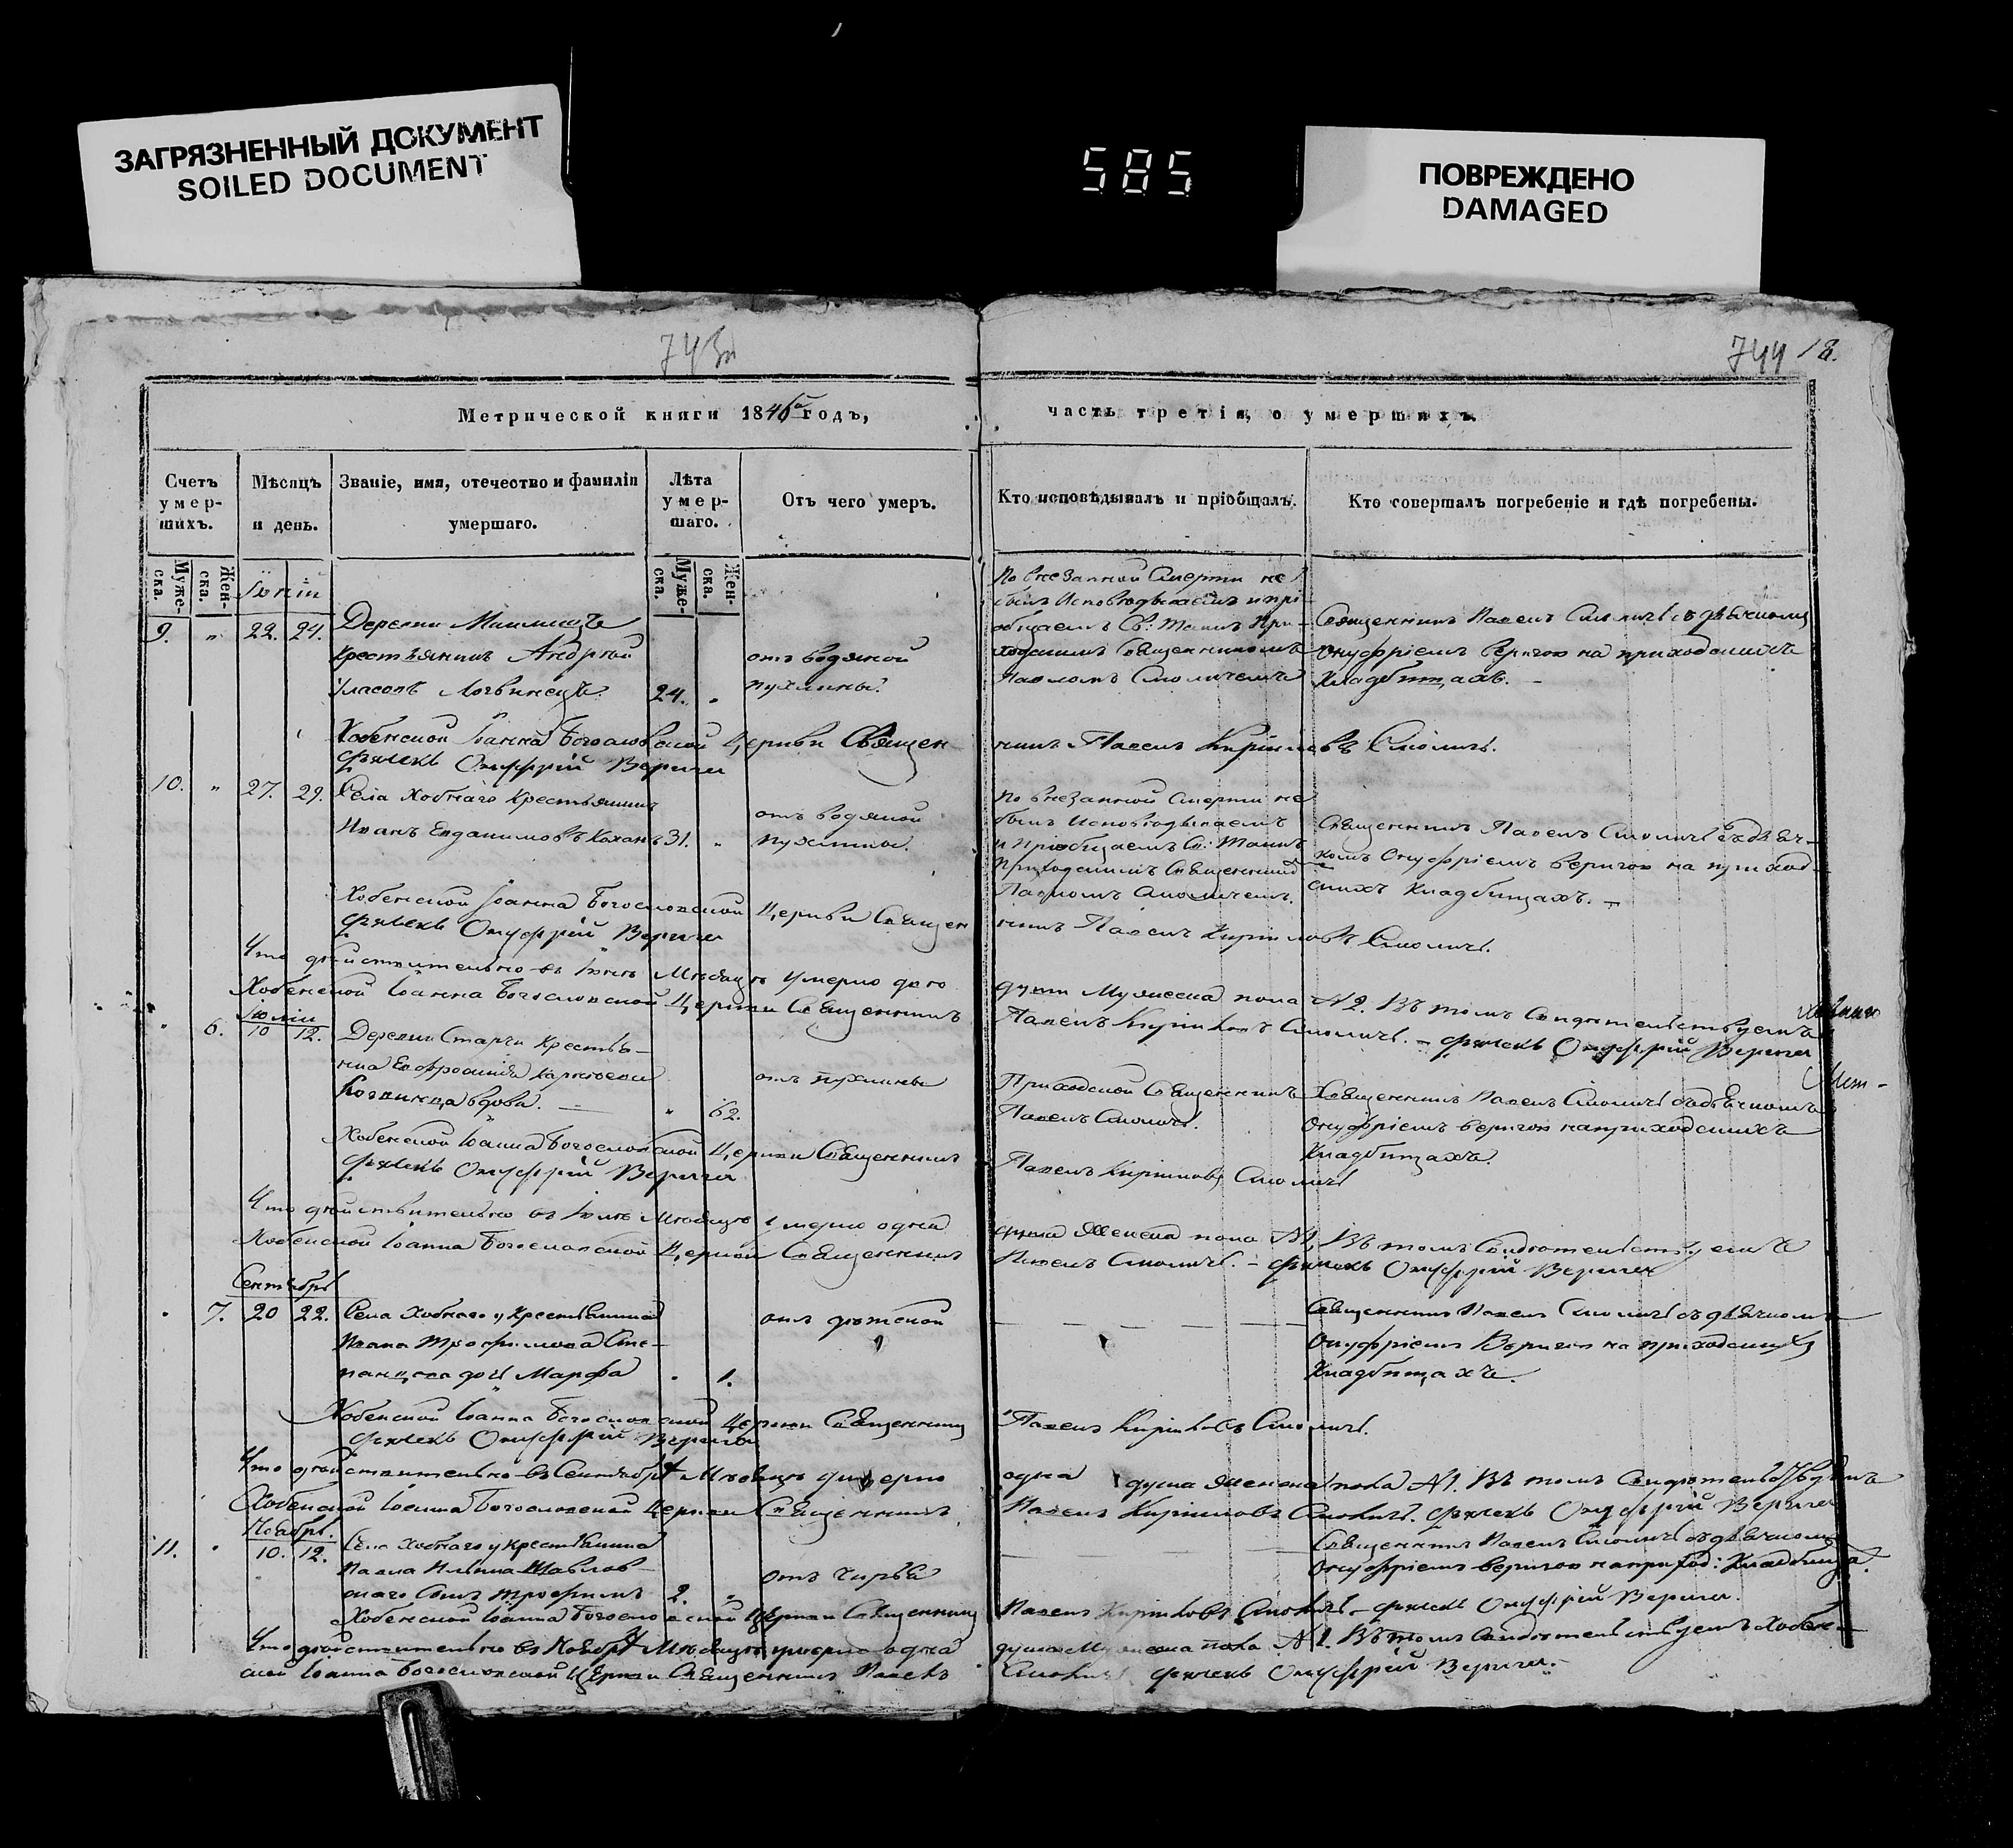 ЗАГРЯЗНЕННЫЙ ДОКУМЕНТ
SOILED DOCUMENT
585
ПОВРЕЖДЕНО
DAMAGED
743
744 18.
Метрической книги 1846 годъ,
часть третія, о умершихъ.
Счетъ умер-шихъ.
Мѣсяцъ и день.
Званіе, имя, отечество и фамилія умершаго.
Лѣта умер-шаго.
Отъ чего умеръ.
Кто исповѣдывалъ и пріобщалъ.
Кто совершалъ погребеніе и гдѣ погребены.
Муже-ска.
Жен-ска.
Муже-ска.
Жен-ска.
Іюній
9. " 22. 24. Деревни
Крестьянинъ Андрей
24. "
отъ водяной
пухлины.
По внезапной Смерти не
былъ Исповѣдываемъ и прі-
общаемъ Св: Таинъ При-
ходскимъ Священникомъ
Павломъ Смоличемъ
Священникъ Павелъ Смоличъ съ дьячкомъ
Онуфріемъ Веригою на приходскихъ
Кладбищахъ.
Хобенской Іоанна Богословской Церкви Священ
никъ Павелъ Кириловъ Смоличъ.
Онуфрій Верига
10. " 27. 29. Села Хобнаго Крестьянинъ
Иванъ Евдакимовъ Кохан 31. "
отъ водяной
пухлины.
По внезапной Смерти не
былъ Исповѣдываемъ
и Пріобщаемъ Св: Таинъ
Приходскимъ Священник
Павломъ Смоличемъ.
Священникъ Павелъ Смоличъ съ дьяч-
комъ Онуфріемъ Веригою на приход-
скихъ Кладбищахъ.
Хобенской Іоанна Богословской Церкви Священ
никъ Павелъ Кириловъ Смоличъ.
Онуфрій Верига
Что дѣйствительно въ Іюнѣ Мѣсяцѣ умерло двѣ
души Мужеска пола №2. Въ томъ Свидѣтельствуемъ
Хобенской Іоанна Богословской Церкви Священникъ
Павелъ Кириловъ Смоличъ. Онуфрій Верига
Іюлій
" 6. 10 12. Деревни Крестья-
вдова. " 62.
отъ пухлины
Приходской Священникъ
Павелъ Смоличъ.
Священникъ Павелъ Смоличъ съ дьячкомъ
Онуфріемъ Веригою на приходскихъ
Кладбищахъ.
Хобенской Іоанна Богословской Церкви Священникъ
Павелъ Кириловъ Смоличъ
Онуфрій Верига
Что дѣйствительно въ Іюлѣ Мѣсяцѣ умерло одна
душа Женска пола №1. Въ томъ Свидѣтельствуемъ
Хобенской Іоанна Богословской Церкви Священникъ
Павелъ Смоличъ. Онуфрій Верига
Сентябрь
" 7. 20 22. Села Хобнаго у Крестьянина
Ивана Трофимова Сте-
дочь Марфа " 1.
отъ дѣтской
Священникъ Павелъ Смоличъ съ дьячкомъ
Онуфріемъ Веригою на приходскихъ
Кладбищахъ.
Хобенской Іоанна Богословской Церкви Священникъ
Павелъ Кириловъ Смоличъ.
Онуфрій Верига
Что дѣйствительно въ Сентябрѣ Мѣсяцѣ умерло
одна душа женска пола №1. Въ томъ Свидѣтельствуемъ
Хобенской Іоанна Богословской Церкви Священникъ
Павелъ Кириловъ Смоличъ. Онуфрій Верига
Ноябрь.
11. " 10. 12. Села Хобнаго у Крестьянина
Павла Ильина
Сынъ Трофимъ 2. "
отъ
Священникъ Павелъ Смоличъ съ дьячкомъ
Онуфріемъ Веригою на приход: Кладбища.
Хобенской Іоанна Богословской Церкви Священникъ
Павелъ Кириловъ Смоличъ Онуфрій Верига.
Что дѣйствительно въ Ноябрѣ Мѣсяцѣ умерло одна
душа Мужеска пола №1. Въ томъ Свидѣтельствуемъ Хобен-
ской Іоанна Богословской Церкви Священникъ Павелъ
Смоличъ Онуфрій Верига.